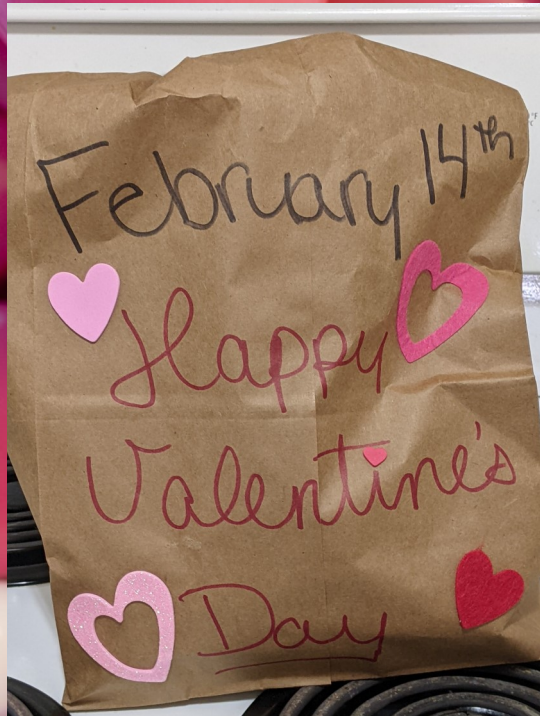 February 14th
Happy
Valentine's
Day